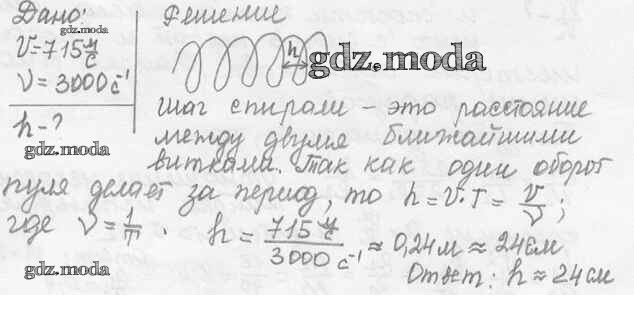 Дано:
gdz.moda
V=715 м/с
ν=3000 с⁻¹
h-?
gdz.moda
Решение
h
gdz.moda
Шаг спирали – это расстояние
между двумя ближайшими
витками. Так как один оборот
пуля делает за период, то h=V·T=V/ν;
где ν=1/T. h=715 м/с / 3000 с⁻¹ ≈ 0,24м ≈ 24см
gdz.moda
Ответ: h≈24см